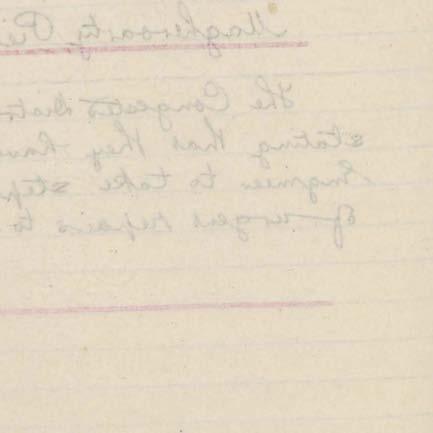 Magheroarty Pie
The Congested Distr
stating that they have
Engineer to take step
of urgent repairs to